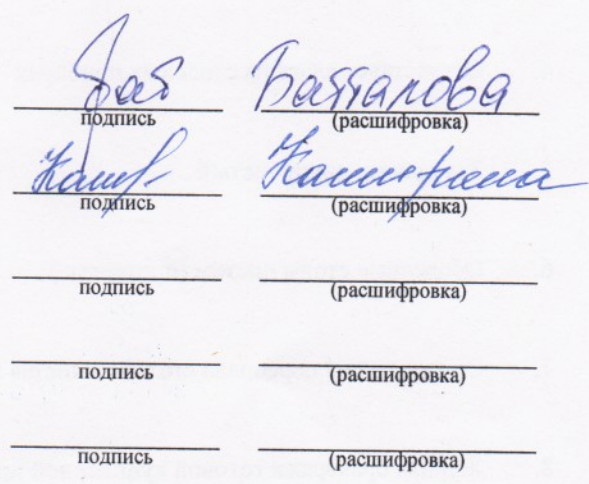 Бат Батталова
подпись (расшифровка)
Каширина
подпись (расшифровка)
подпись (расшифровка)
подпись (расшифровка)
подпись (расшифровка)